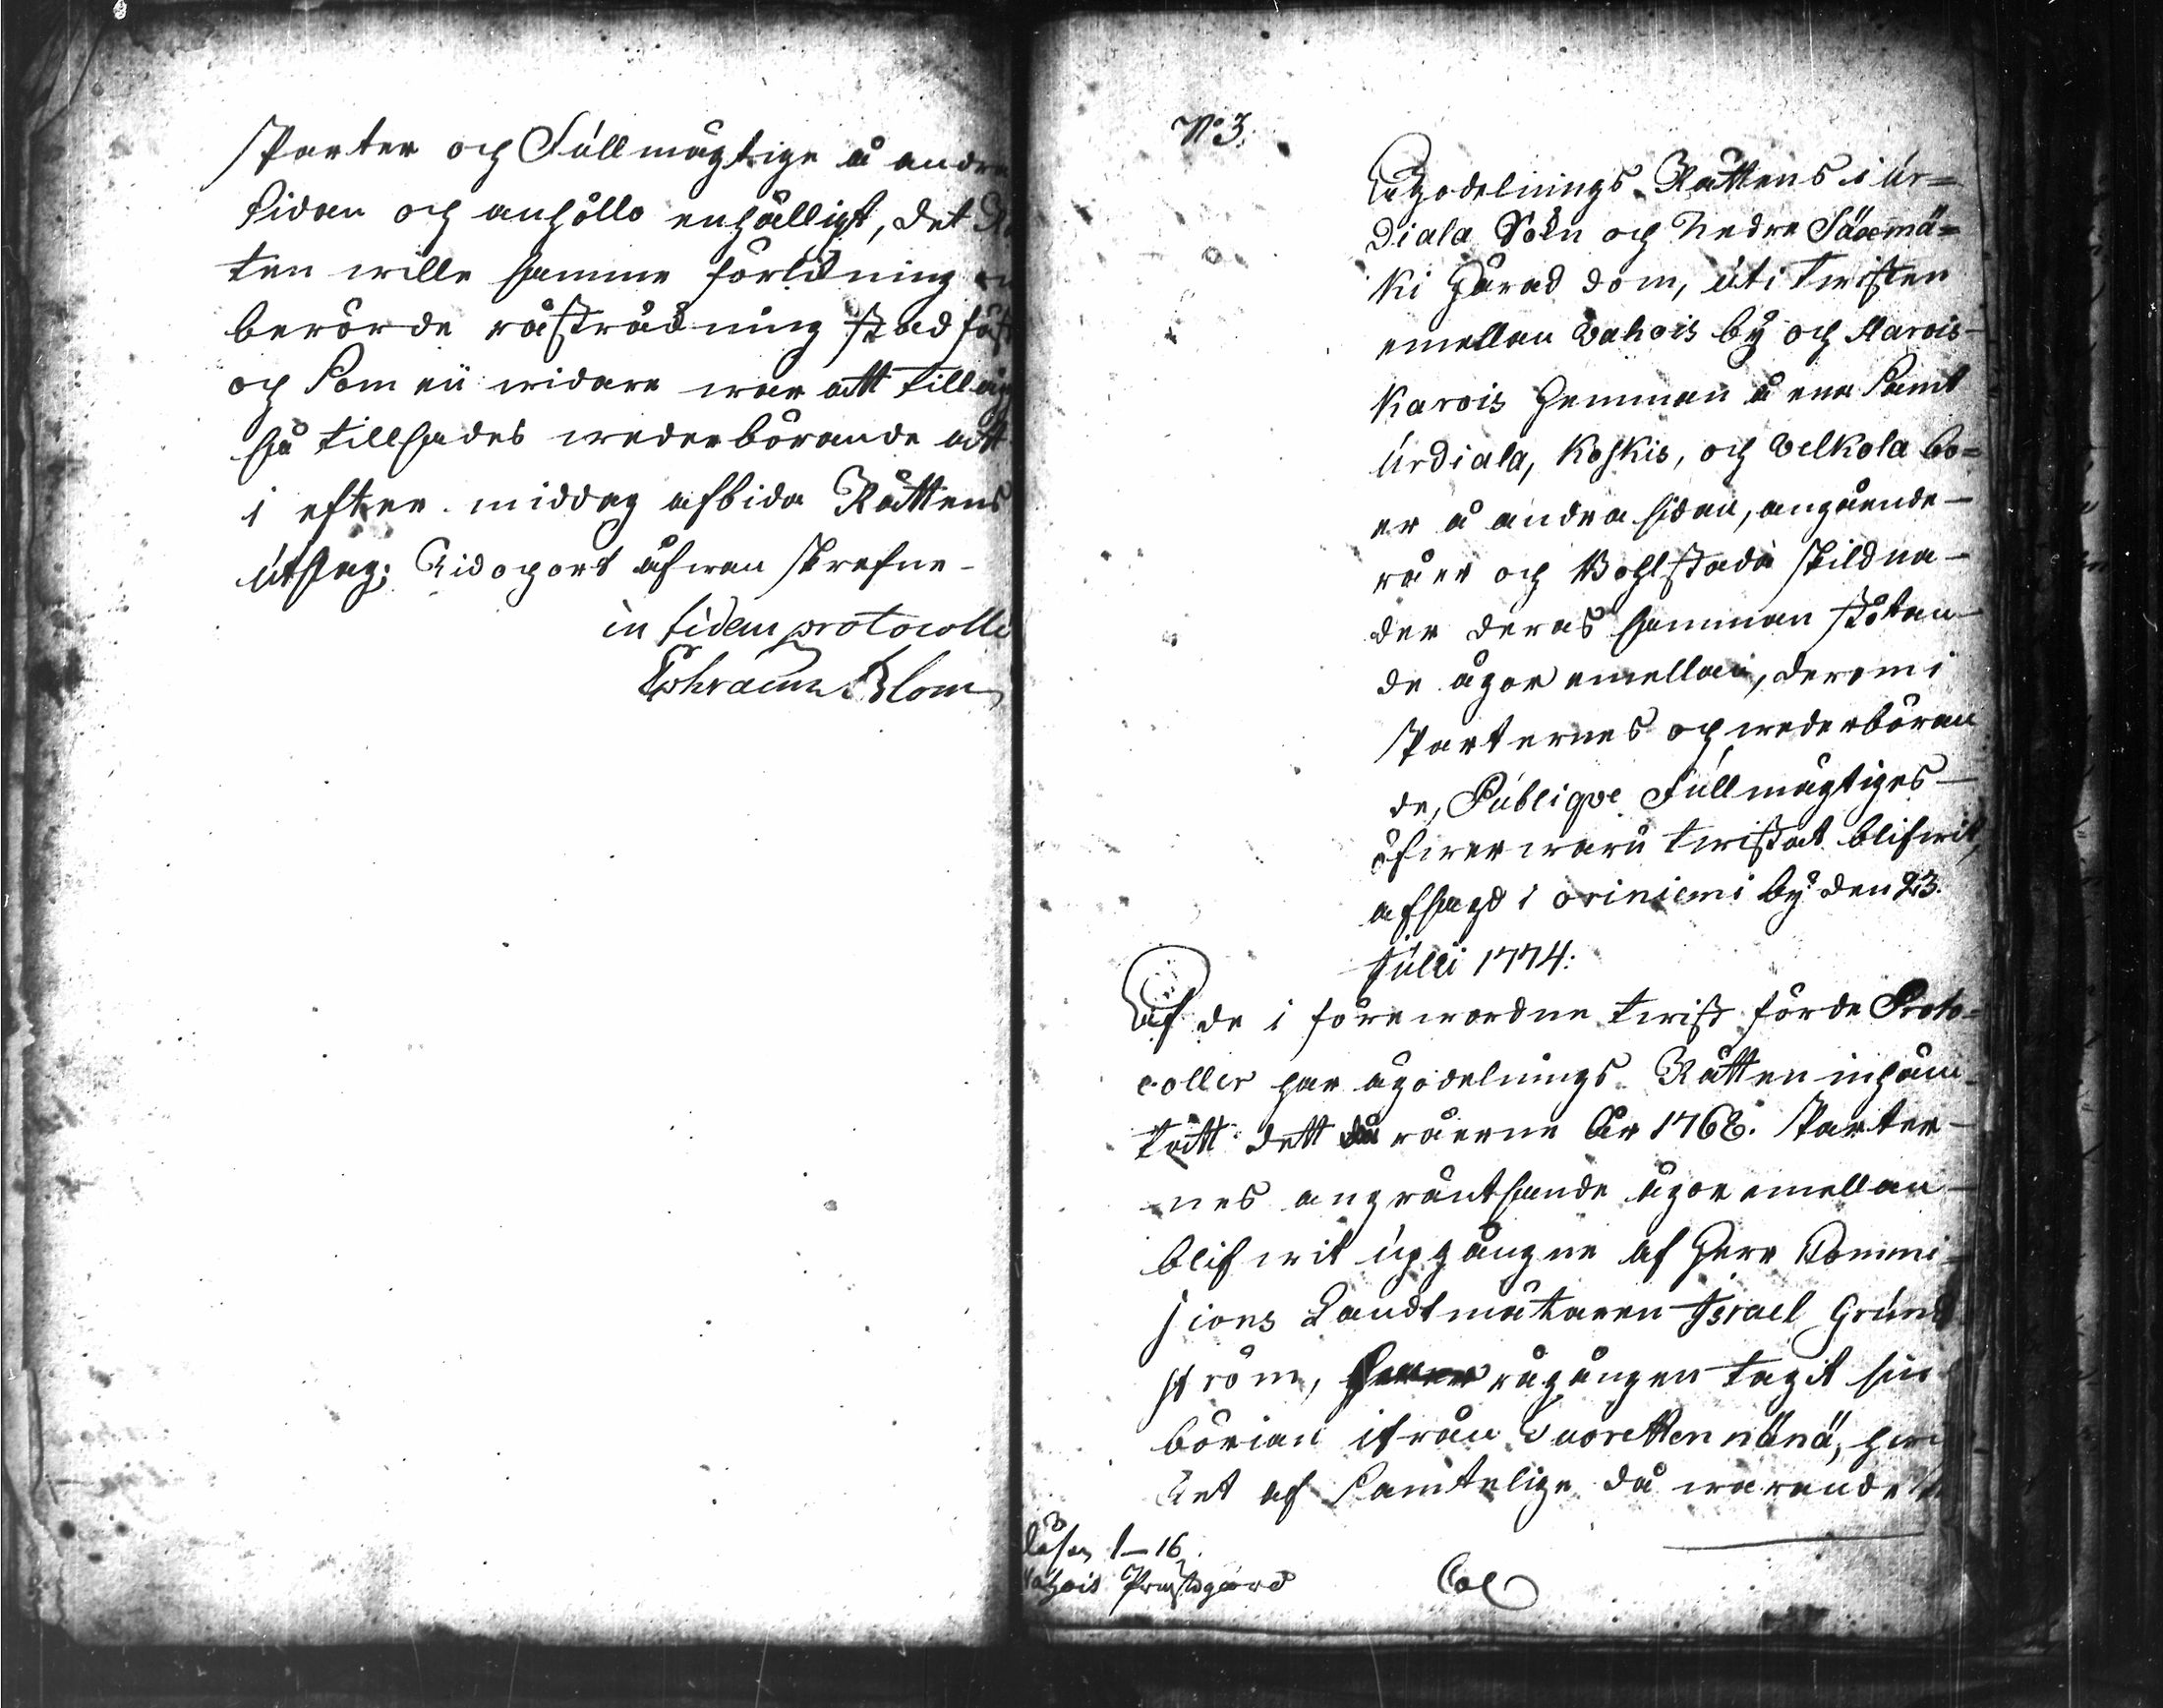 Parter och Fúllmägtige å andra
sidan och anhöllo enhälligt, det
ten wille samme förlikning
berörde råsträckning stadfäst
och som eij widare war att tilläg
så tillsades wederbörande att
i efter middag afbida Rättens
útslag; Uidoport åfwan skrefne
in fidem protocolli
Ephraim Blom
N:3.
Ägodelnings Rättens i Úr=
diala Sokn och Nedre Sääxmä=
ki Härad dom, úti twisten
emellan Vahois bÿ och Harois
Karois Hemman å ena samt
Úrdiala, Koskis, och Velkola bo=
er å andra sidan, angående
råer och Bohlstada skildna
der deras samman stötan
de ägor emellan, derom i
Parternes och wederböran
de, Públiqve Fúllmägtiges
öfwerwarú twistat blifwit,
afsagd i oriniemi bÿ den 23.
Júlii 1774:
Af de i förewordne twist förde Proto=
coller har ägodelnings Rätten inhäm
tatt dett råerne År 1768. Parter
nes angräntsande ägor emellan
blifwit úpgångne af Herr Commi
sions Landtmätaren Israel Grúnd
ström, rågången tagit sin
börian ifrån Vuorettennänä, hwil
ket af samtelige då warande
Lösen 1–16
Vahois Prustgård
Col